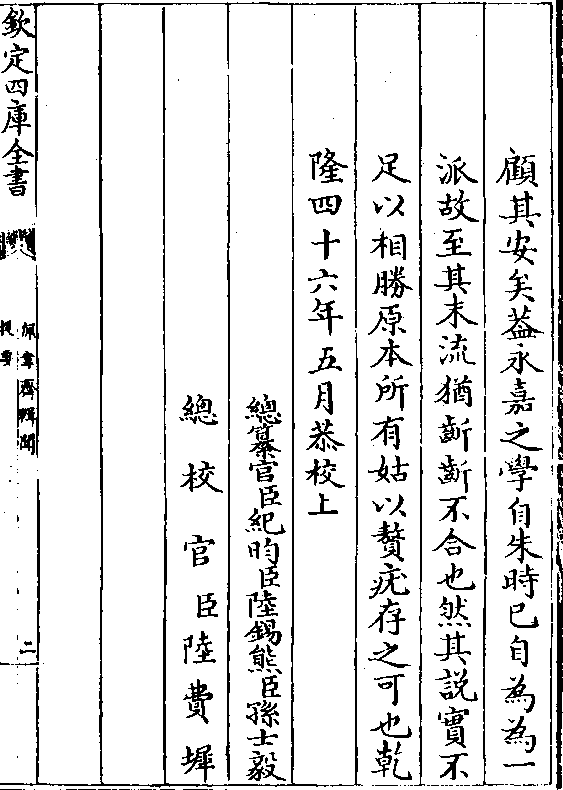 顧其安矣葢永嘉之學自朱時已自為為一
派故至其末流猶齗齗不合也然其説實不
足以相勝原本所有姑以贅疣存之可也乾
隆四十六年五月恭校上
總纂官臣紀昀臣陸錫熊臣孫士毅
總校官臣陸費墀
欽定四庫全書
佩韋齋輯聞
提要
二